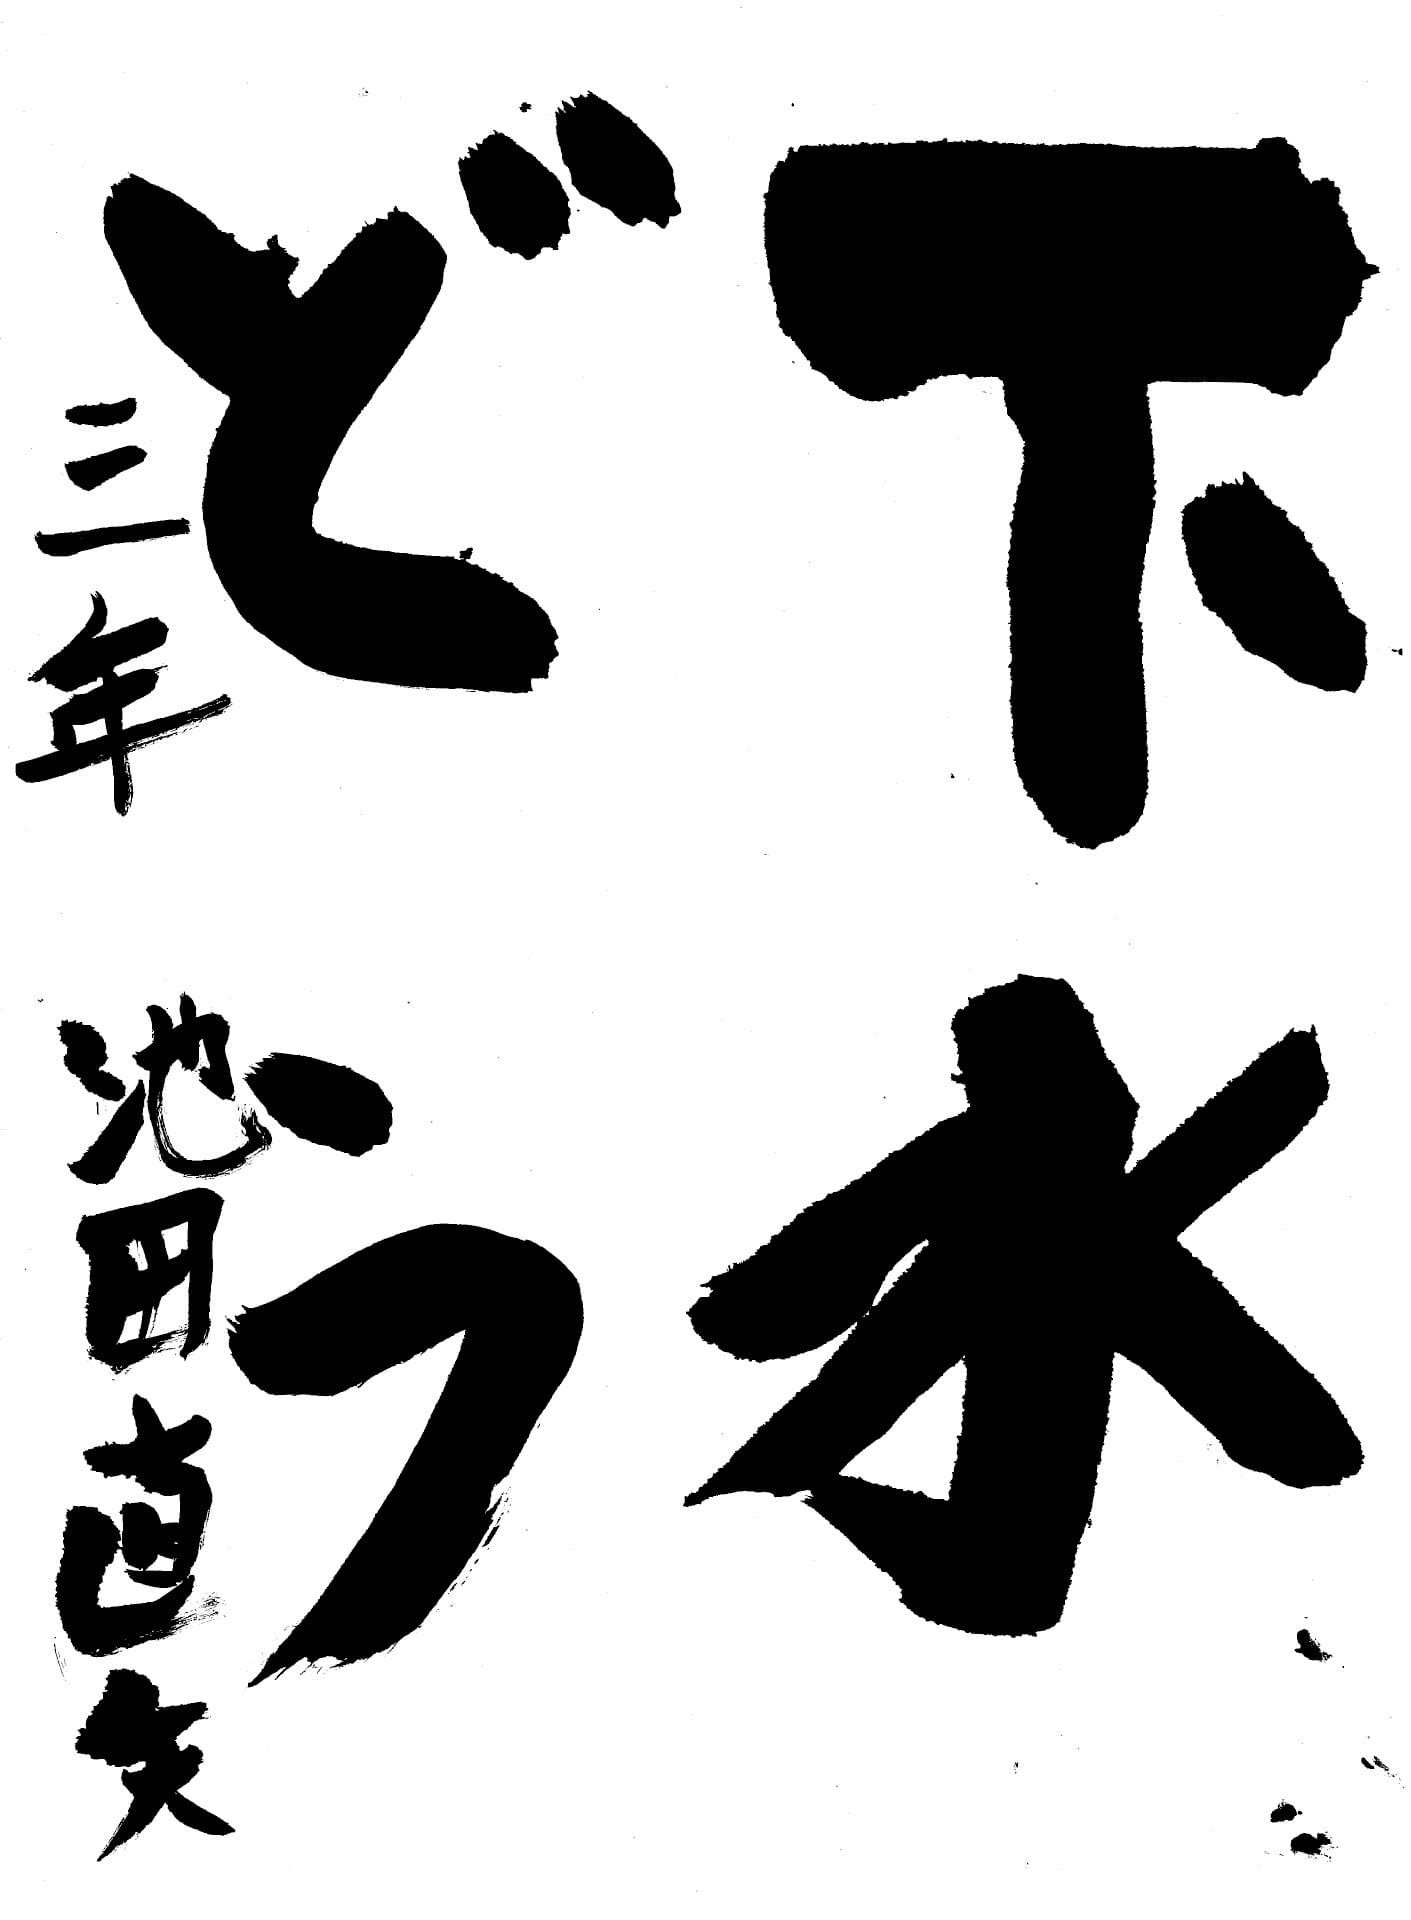 下水
どう
三年 池田直文